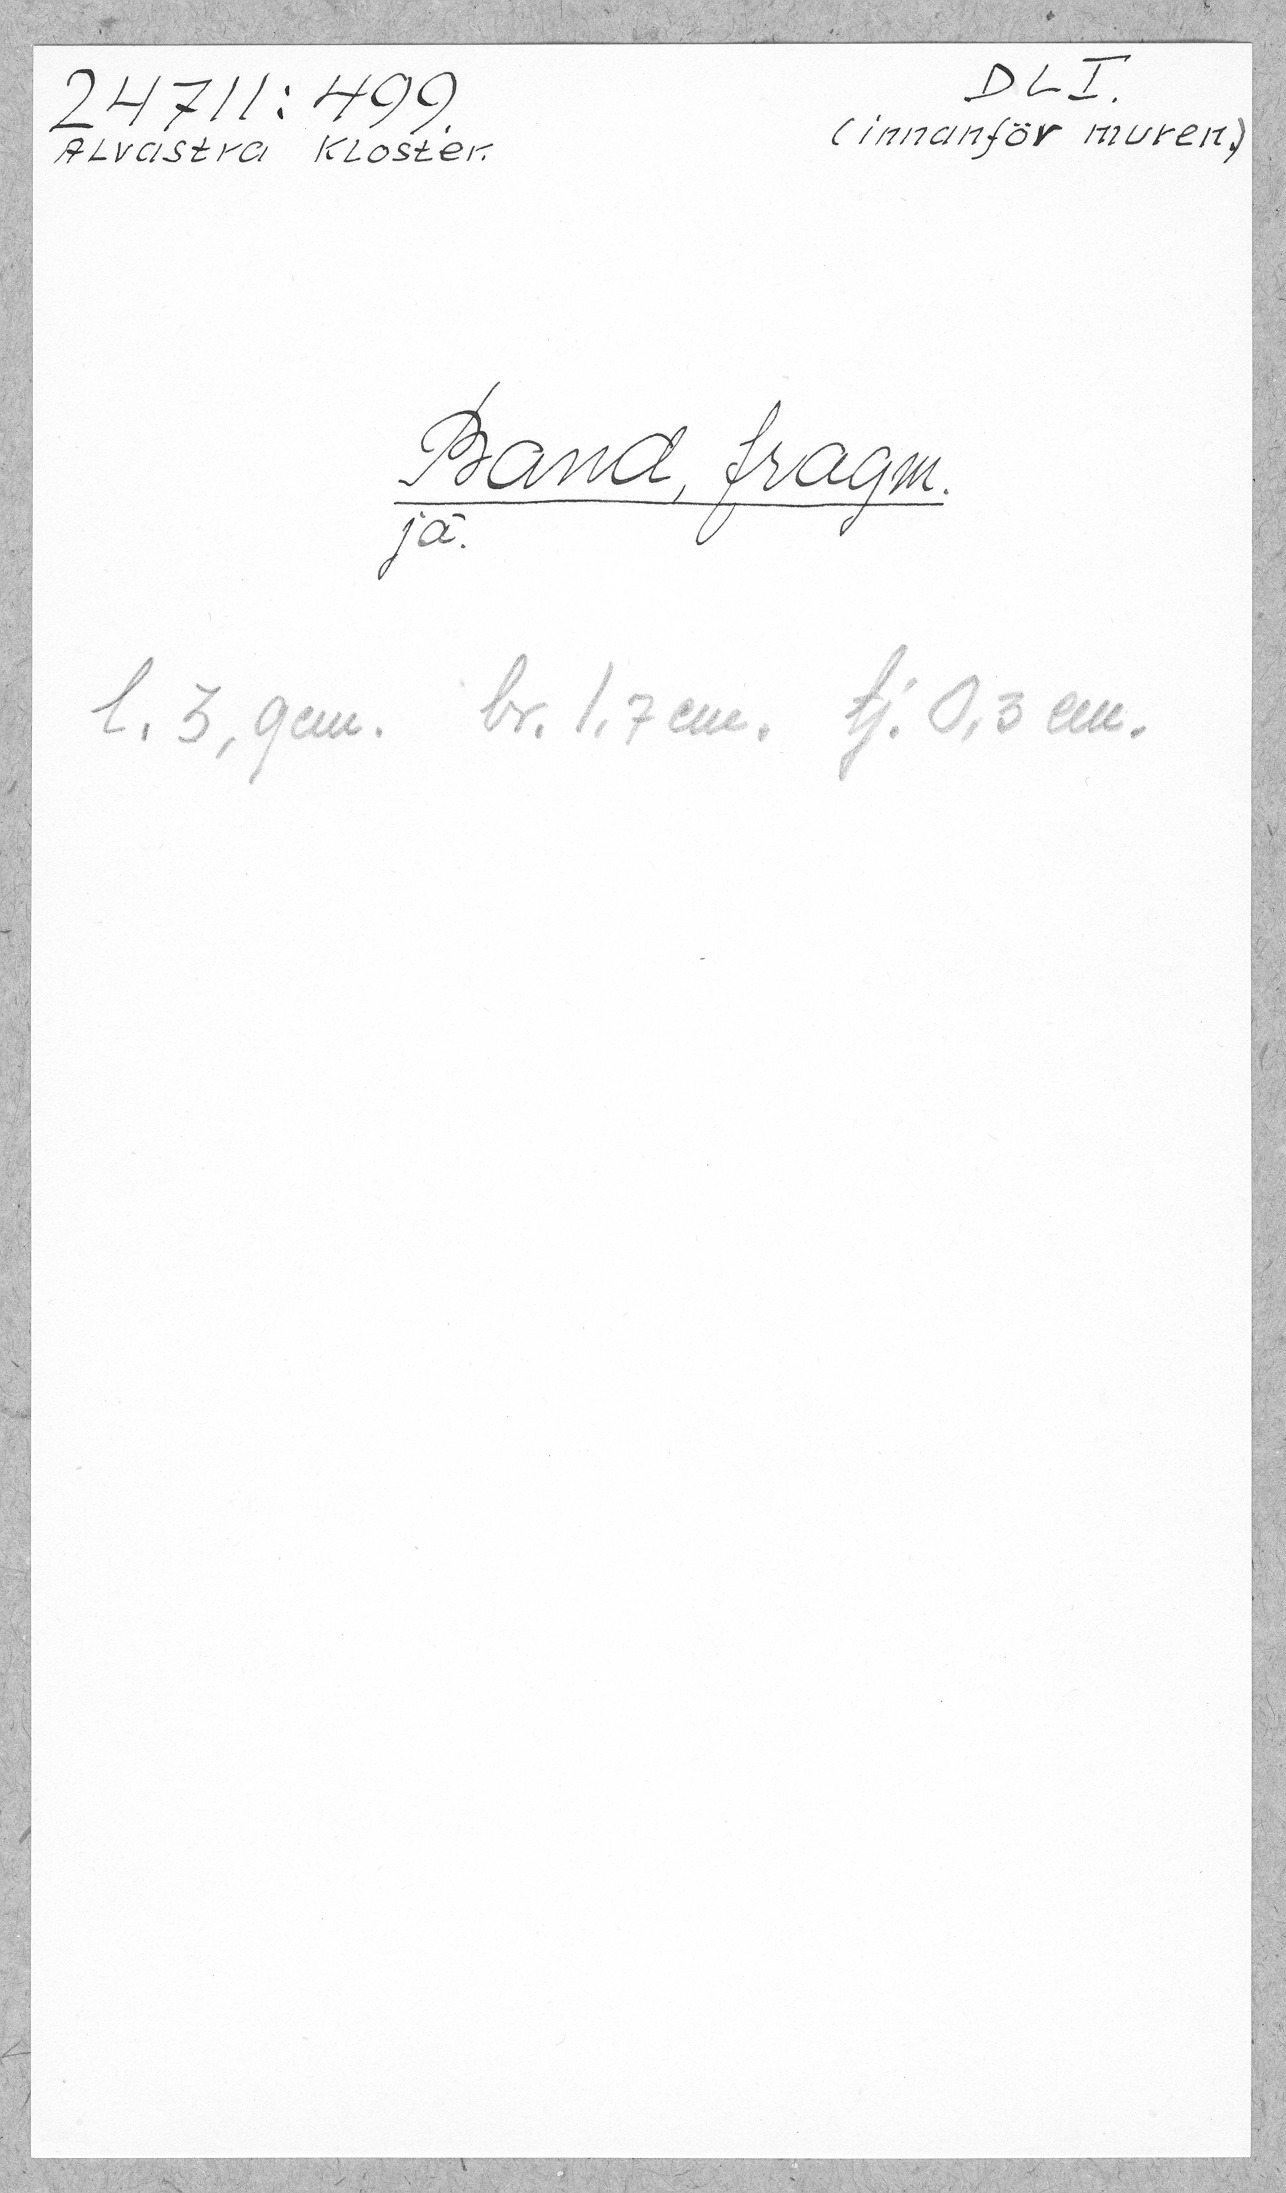 24711:499.
Alvastra Kloster.
DLI.
(innanför muren.)
Band, fragm.
jä.
l. 3,9 cm. br. 1,7 cm. tj. 0,3 cm.